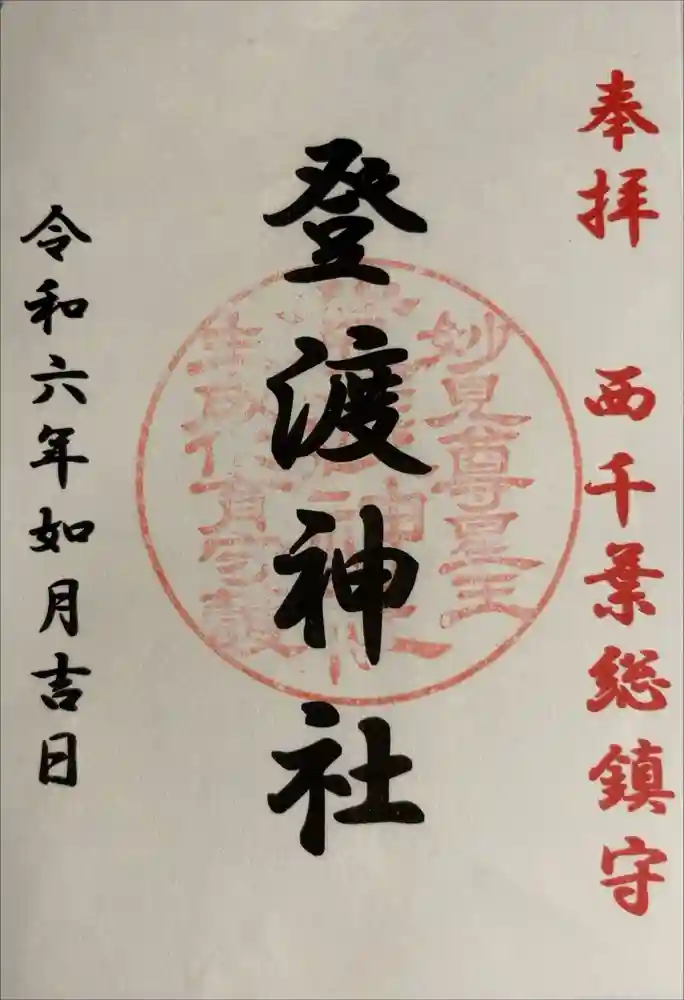 奉拝 西千葉総鎮守
登渡神社
妙見尊星王
令和六年如月吉日